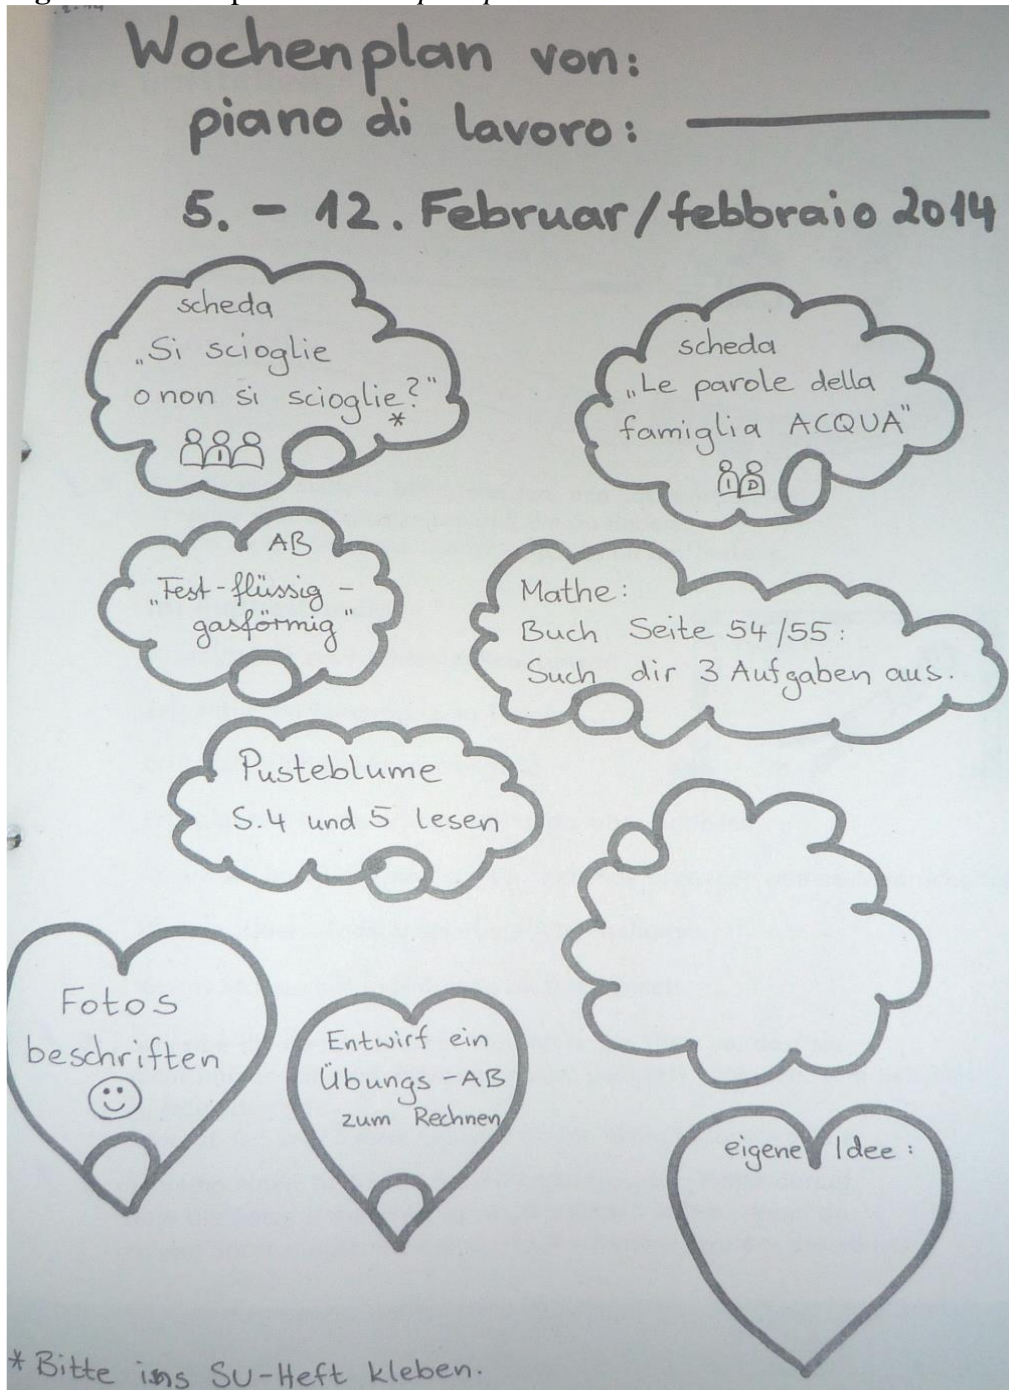 Wochenplan von:
piano di lavoro:
5. - 12. Februar/febbraio 2014
scheda
„Si scioglie
o non si scioglie?"
*
I
scheda
„Le parole della
famiglia ACQUA"
I D
AB
„Fest-flüssig-
gasförmig"
Mathe:
Buch Seite 54/55:
Such dir 3 Aufgaben aus.
Pusteblume
S.4 und 5 lesen
Fotos
beschriften
Entwirf ein
Übungs-AB
zum Rechnen
eigene Idee:
* Bitte ins SU-Heft kleben.